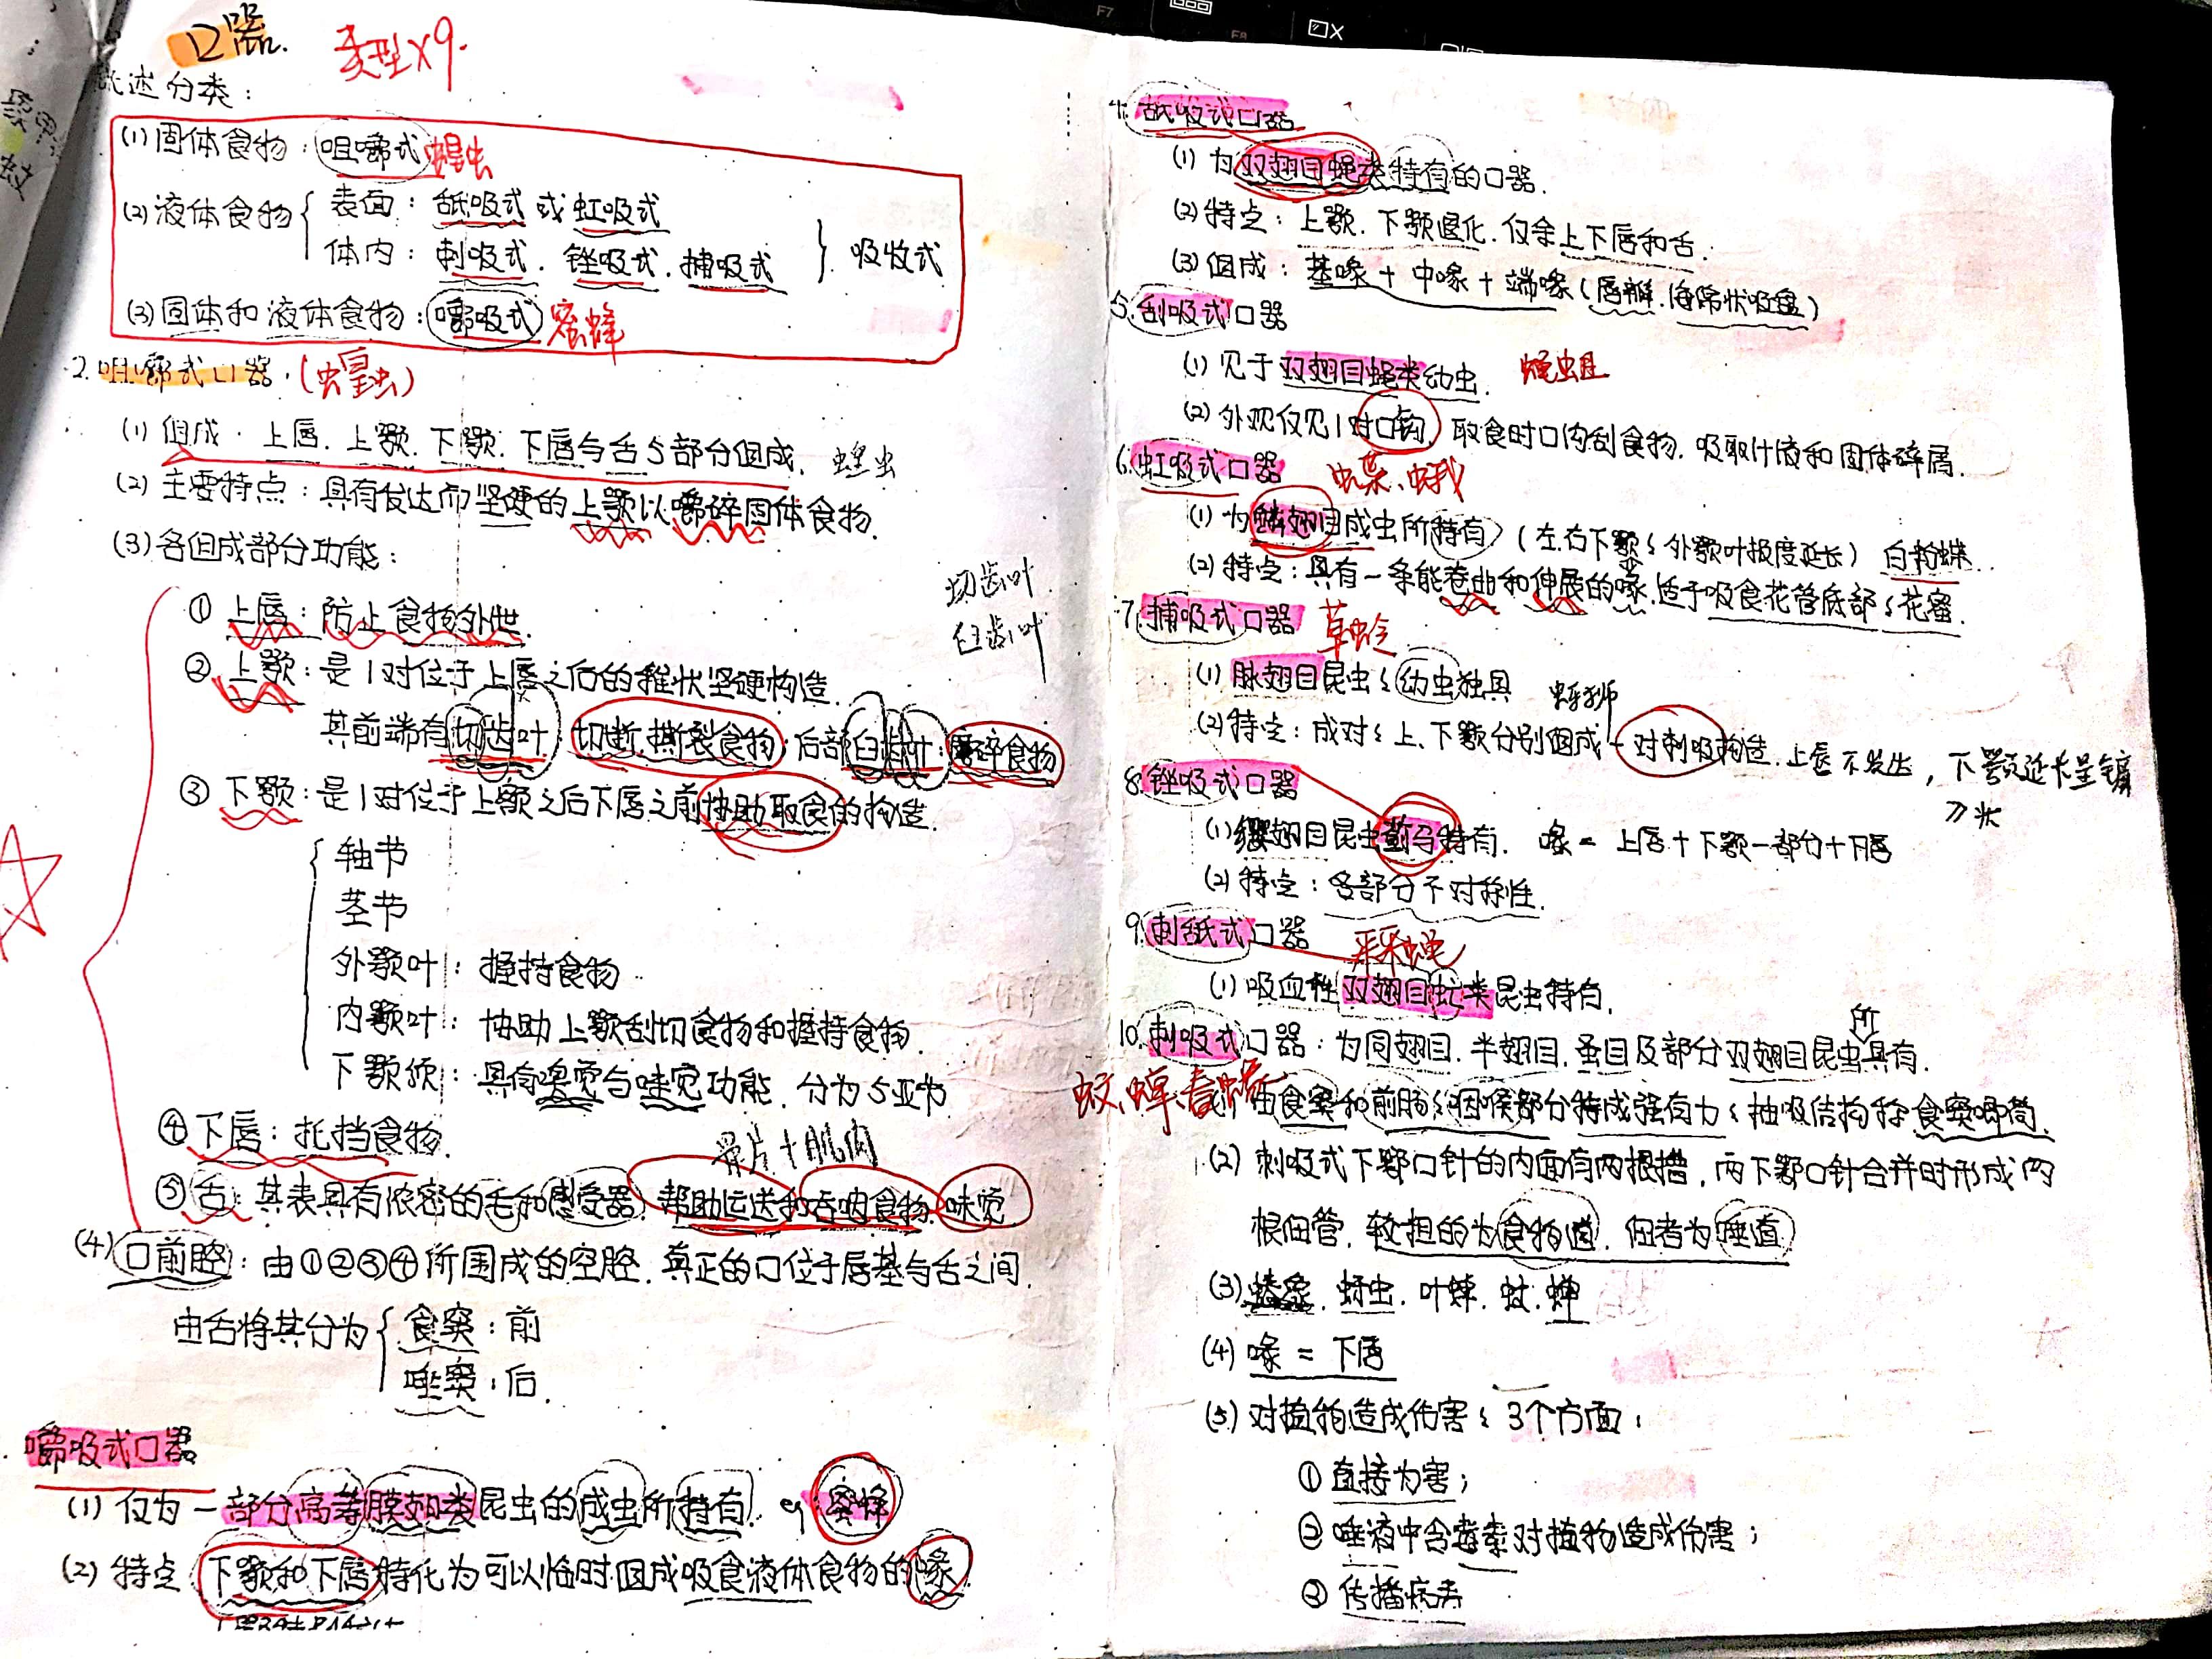 口器.
类型×9.
概述分类：
(1) 固体食物：咀嚼式 蝗虫
(2) 液体食物
表面：舐吸式 或 虹吸式
体内：刺吸式. 锉吸式. 捕吸式
吸收式
(3) 固体和液体食物：嚼吸式 蜜蜂
2. 咀嚼式口器. (蝗虫)
(1) 组成. 上唇. 上颚. 下颚. 下唇与舌5部分组成. 蝗虫
(2) 主要特点：具有发达而坚硬的上颚以嚼碎固体食物.
(3) 各组成部分功能：
① 上唇：防止食物外泄.
切齿叶
臼齿叶
② 上颚：是1对位于上唇之后的锥状坚硬构造.
其前端有切齿叶：切断.撕裂食物 后部臼齿叶：磨碎食物
③ 下颚：是1对位于上颚之后下唇之前协助取食的构造.
轴节
茎节
外颚叶：握持食物
内颚叶：协助上颚刮切食物和握持食物.
下颚须：具有嗅觉与味觉功能. 分为5亚节
④ 下唇：托挡食物.
骨片+肌肉
⑤ 舌：其表具有浓密的毛和感受器. 帮助运送和吞咽食物. 味觉
(4) 口前腔：由①②③④所围成的空腔. 真正的口位于唇基与舌之间.
由舌将其分为
食窦：前
唾窦：后.
嚼吸式口器
(1) 仅为一部分高等膜翅类昆虫的成虫所特有. eg：蜜蜂
(2) 特点 下颚和下唇特化为可以临时组成吸食液体食物的喙.
4. 舐吸式口器
(1) 为双翅目蝇类特有的口器.
(2) 特点：上颚. 下颚退化. 仅余上下唇和舌.
(3) 组成：基喙+中喙+端喙 (唇瓣. 海绵状吸盘)
5. 刮吸式口器
(1) 见于双翅目蝇类幼虫. 蝇蛆
(2) 外观仅见1对口钩, 取食时口沟刮食物. 吸取汁液和固体碎屑.
6. 虹吸式口器 蝶、蛾
(1) 为鳞翅目成虫所特有 (左.右下颚之外颚叶极度延长) 白粉蝶.
(2) 特点：具有一条能卷曲和伸展的喙. 适于吸食花管底部之花蜜.
7. 捕吸式口器 草蛉
(1) 脉翅目昆虫之幼虫独具 蚜狮
(2) 特点：成对之上、下颚分别组成一对刺吸构造. 上唇不发达, 下颚延长呈镰
刀状
8. 锉吸式口器
(1) 缨翅目昆虫蓟马特有. 喙=上唇+下颚一部分+下唇
(2) 特点：各部分不对称性.
9. 刺舐式口器 采采蝇
(1) 吸血性双翅目虻类昆虫特有.
10. 刺吸式口器：为同翅目. 半翅目. 蚤目及部分双翅目昆虫所具有.
蚊、蝉、椿象
由食窦和前肠之咽喉部分特成强有力之抽吸结构称食窦唧筒.
(2) 刺吸式下颚口针的内面有两根槽, 两下颚口针合并时形成两
根细管. 较粗的为食物道. 细者为唾道
(3) 蝽象. 蚜虫. 叶蝉. 蚊. 蝉
(4) 喙=下唇
(5) 对植物造成伤害之3个方面：
① 直接为害；
② 唾液中含毒素对植物造成伤害；
③ 传播病毒